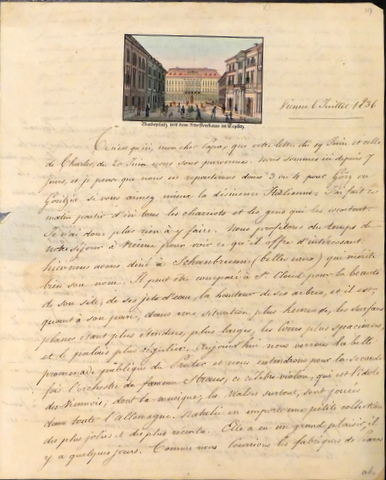 Vienne 6 Juillet 1836
Badeplatz mit dem Fürstenhaus in Teplitz
C'est qu'ici, mon cher que cette lettre du 19 Juin et celle
de Charles, du 20 Juin nous sont parvenues. Nous sommes ici depuis 7
jours, et je pense que nous en repartirons dans 3 ou 4 pour Göry ou
Gorizia si vous aimez mieux la désinence Italienne. J'ai fait ce
matin partir d'ici tous les chariots et les gens que les
Je n'ai donc plus rien à y faire. Nous profitons du temps de
notre séjour à Vienne pour voir ce qu'il offre d'intéressant.
hier nous avons diné à Schoenbrunn (belle source) qui mérite
bien son nom. Il peut être comparé à St Cloud pour la beauté
de son site, de ses jets d'eau, la hauteur de ses arbres, et il est,
quant à son parc, dans une situation plus heureuse, les surfaces
planes étant plus étendues, plus larges, les cours plus spacieuses
et le palais plus régulier. Aujourd'hui nous verrons la belle
promenade publique du Prater et nous entendrons pour la seconde
fois l'orchestre du fameux Strauss, ce célèbre violon, qui est l'idole
des Viennois, dont la musique, les Valses surtout, sont jouées
dans toute l'allemagne. en emporte une petite collection
des plus jolies et des plus récentes. Elle a eu un grand plaisir, il
y a quelques jours. Comme nous les fabriques de